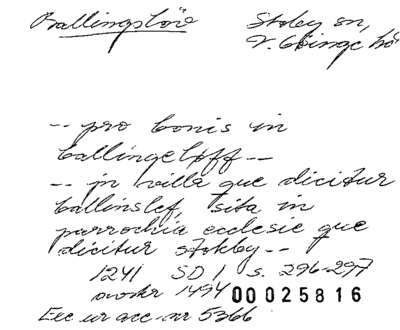 Ballingslöv Stoby sn,
V. Göinge hd
-- pro bonis in
ballingelöff --
-- in villa que dicitur
ballinslef, sita in
parrochia ecclesie que
dicitur stokby --
1241 SD 1 s. 296-297
avskr 1494 00025816
Exc ur acc. nr 5366